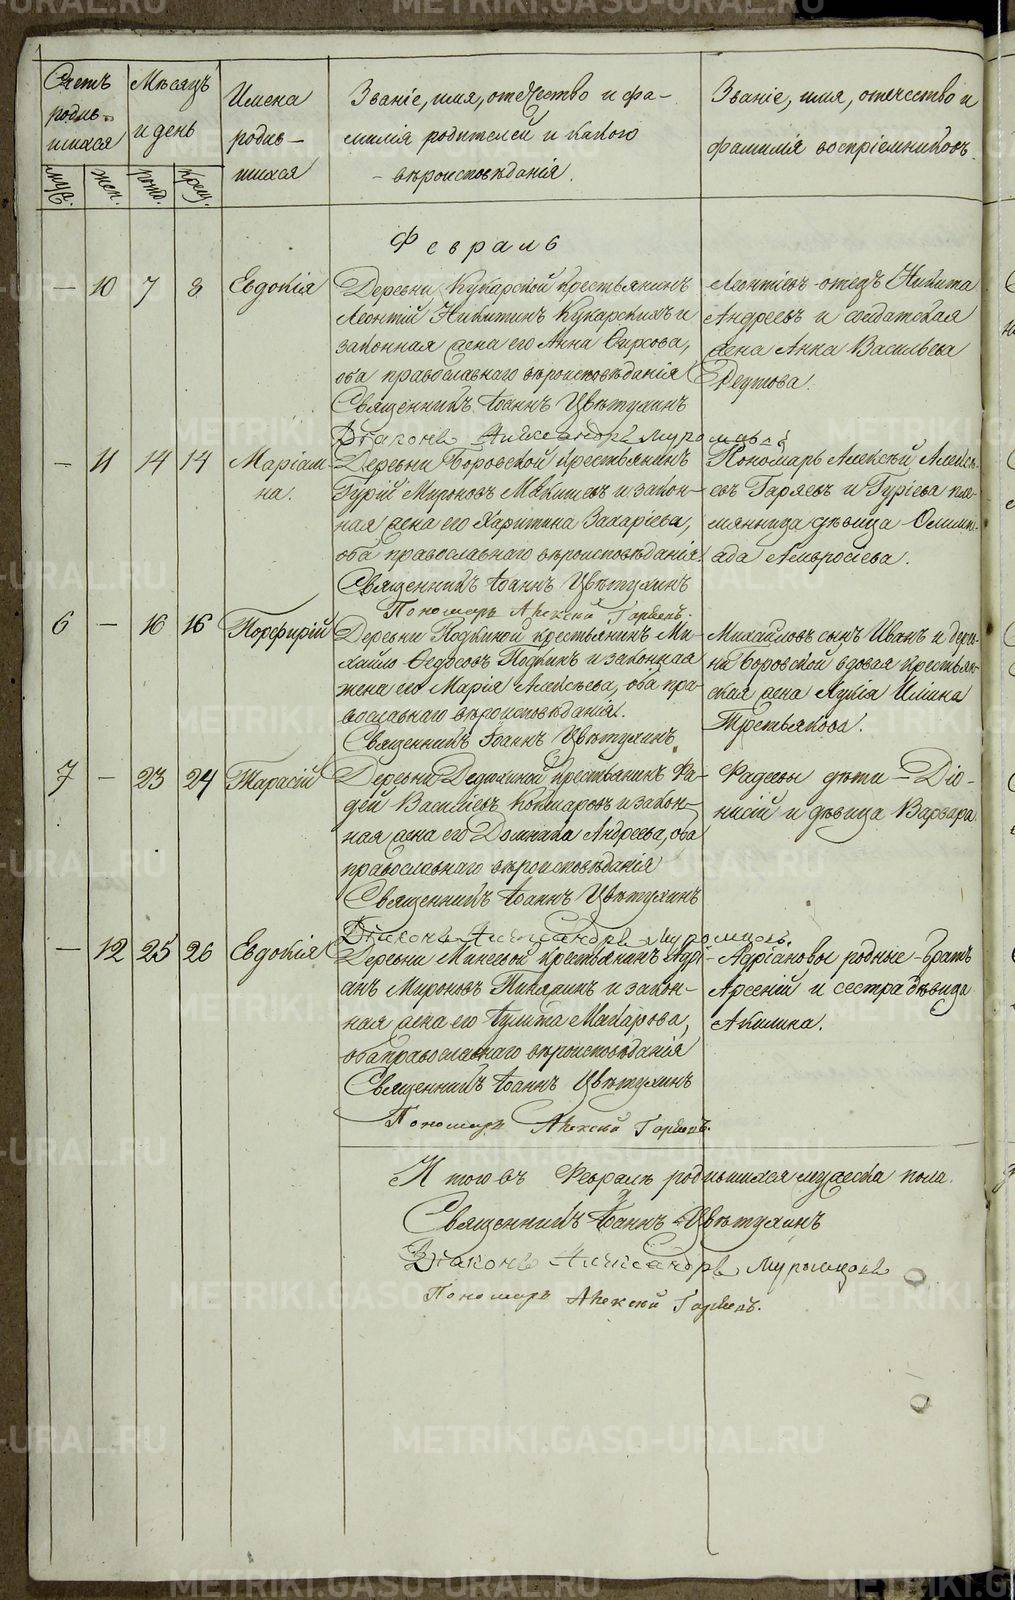 Счетъ родив-шихся
муж.
жен.
Мѣсяцъ и день
рожд.
крещ.
Имена родив-шихся
Званіе, имя, отечество и фа-
милія родителей и какого
- вѣроисповѣданія.
Званіе, имя, отечество и
фамилія воспріемниковъ.
Февраль
— 10 7 8 Евдокія
Деревни Кукарской крестьянинъ
Леонтій Никитинъ Кукарскихъ и
законная жена его Анна Фирсова,
оба православнаго вѣроисповѣданія
Священникъ Іоаннъ Цвѣтухинъ
Діаконъ Александръ Муромцовъ
Леонтіевъ отецъ Никита
Андреевъ и солдатская
жена Анна Васильева
Редутова.
— 11 14 14 Маріам-
на.
Деревни Боровской крестьянинъ
Гурій Мироновъ Мякишевъ и закон-
ная жена его Харитина Захаріева,
оба православнаго вѣроисповѣданія.
Священникъ Іоаннъ Цвѣтухинъ
Пономарь Алексѣй Гаряевъ.
Пономарь Алексѣй Алексѣ-
евъ Гаряевъ и Гуріева пле-
мянница дѣвица Олимпі-
ада Амвросіева.
6 — 16 16 Порфирій
Деревни Подкиной крестьянинъ Ми-
хайло Федосовъ Подкинъ и законная
жена его Марія Алексѣева, оба пра-
вославнаго вѣроисповѣданія.
Священникъ Іоаннъ Цвѣтухинъ
Михайловъ сынъ Иванъ и дерев-
ни Боровской вдовая крестьян-
ская жена Лукія Ильина
Третьякова.
7 — 23 24 Тарасій
Деревни Дедюхиной крестьянинъ Фа-
дей Васильевъ Кокшаровъ и закон-
ная жена его Домника Андреева, оба
православнаго вѣроисповѣданія
Священникъ Іоаннъ Цвѣтухинъ
Діаконъ Александръ Муромцовъ
Фадеевы дѣти — Діо-
нисій и дѣвица Варвара.
— 12 25 26 Евдокія
Деревни Минеевой крестьянинъ Адрі-
анъ Мироновъ Пинягинъ и закон-
ная жена его Іулита Макарова,
оба православнаго вѣроисповѣданія
Священникъ Іоаннъ Цвѣтухинъ
Пономарь Алексѣй Гаряевъ.
Адріановы родные — братъ
Арсеній и сестра дѣвица
Акилина.
Итого въ Февралѣ родившихся мужеска пола
Священникъ Іоаннъ Цвѣтухинъ
Діаконъ Александръ Муромцовъ
Пономарь Алексѣй Гаряевъ.
METRIKI.GASO-URAL.RU